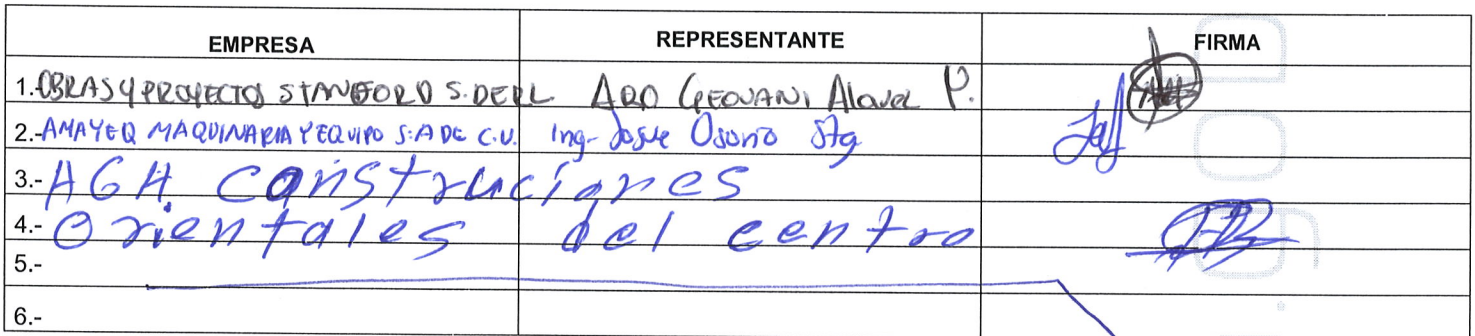 EMPRESA REPRESENTANTE FIRMA
1. OBRAS Y PROYECTOS STANFORD S. DE RL ARQ GEOVANI P.
2.- AMAYEQ MAQUINARIA Y EQUIPO S.A DE C.V. Ing- Josue Osorio
3.- AGA construciones
4.- Orientales del centro
5.-
6.-